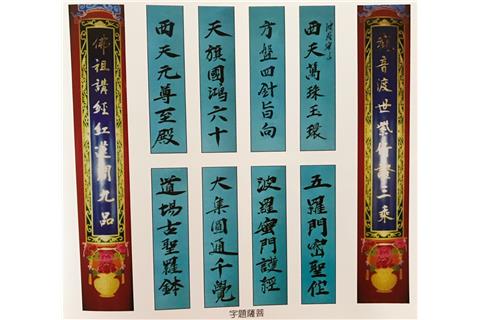 觀音渡世紫竹證三乘
西天萬珠玉環
方盤四針旨向
天旗國鴻六十
西天元尊至殿
五羅門密聖佐
波羅蜜門護經
大集圓通千覺
道場古聖羅鉢
佛祖講經紅蓮開九品
菩薩題字